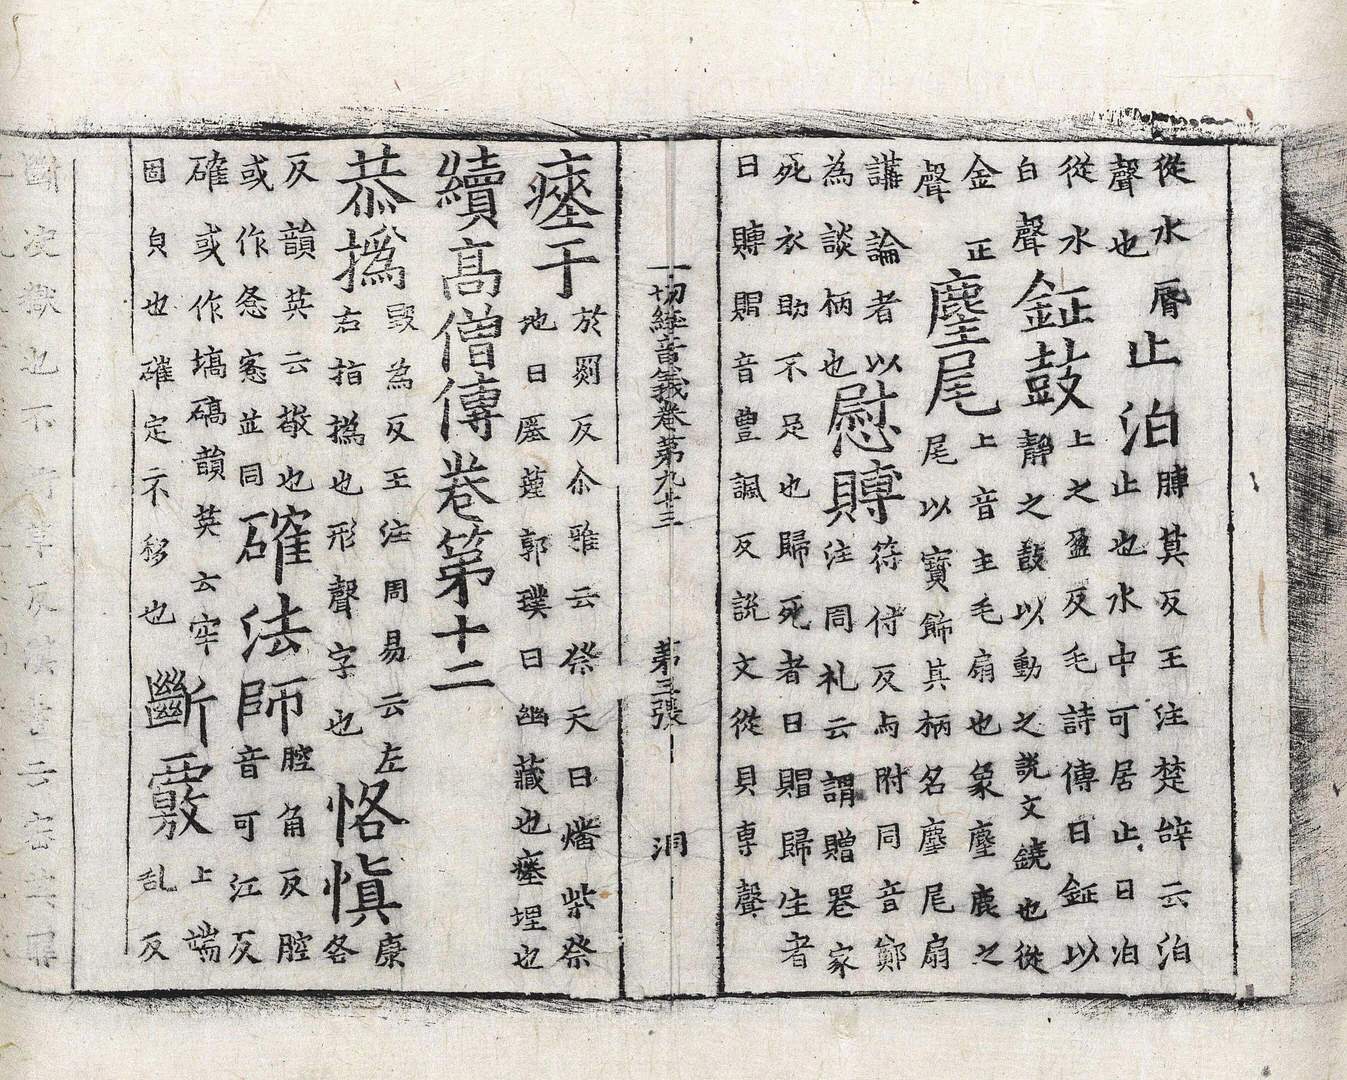 從水脣
聲也
止泊
膊莫反王注楚辞云泊
止也水中可居止曰泊
從水
白聲
鉦鼓
上之盈反毛詩傳曰鉦以
靜之鼓以動之説文鐃也從
金正
聲
麈尾
上音主毛扇也象麈鹿之
尾以寶飾其柄名麈尾扇
講論者以
為談柄也
慰賻
符付反与附同音鄭
注同礼云謂贈器家
死衣助不足也歸死者曰賵歸生者
曰賻賵音豊諷反説文從貝専聲
一切經音義卷第九十三 第三張 洞
瘞于
於罽反尒雅云祭天曰燔柴祭
地曰瘞薶郭璞曰幽藏也瘞埋也
續高僧傳卷第十二
恭撝
毀為反王注周易云左
右指撝也形聲字也
恪愼
康
各
反韻英云敬也
或作愙並同
確法師
腔角反腔
音可江反
確或作塙碻韻英云牢
固皃也確定不移也
斷覈
上端
乱反